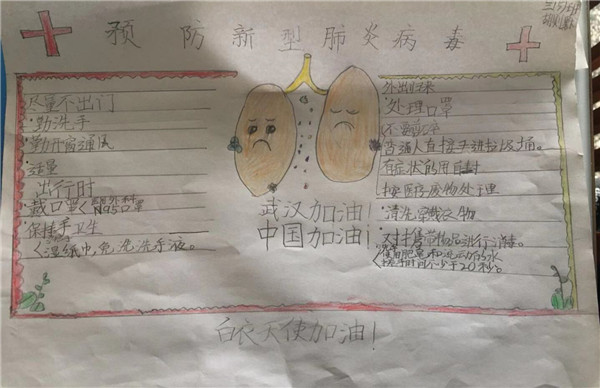 预防新型肺炎病毒
尽量不出门
勤洗手
勤开窗通风
适量
出行时
戴口罩<医用外科 N95口罩
保持手卫生
<湿纸巾,免洗洗手液。
武汉加油!
中国加油!
外出归来
处理口罩
普通人直接丢进垃圾桶。
有症状的用自封
按医疗废物处理
清洗穿戴衣物
对携带物品进行消毒。
用肥皂和流动的水
洗手时间不少于20秒。
白衣天使加油!